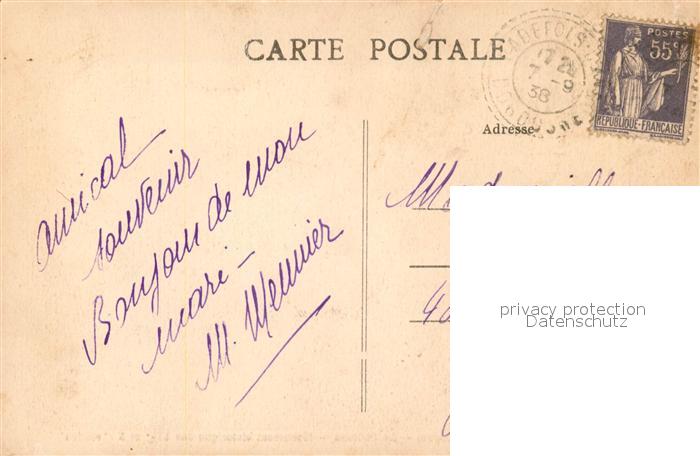 CARTE POSTALE
ADEFOLS
17 2
7 - 9
38
POSTES
55c
REPUBLIQUE-FRANÇAISE
Adresse
amical
souvenir
Bonjour de mon
mari -
M. Meunier
privacy protection
Datenschutz